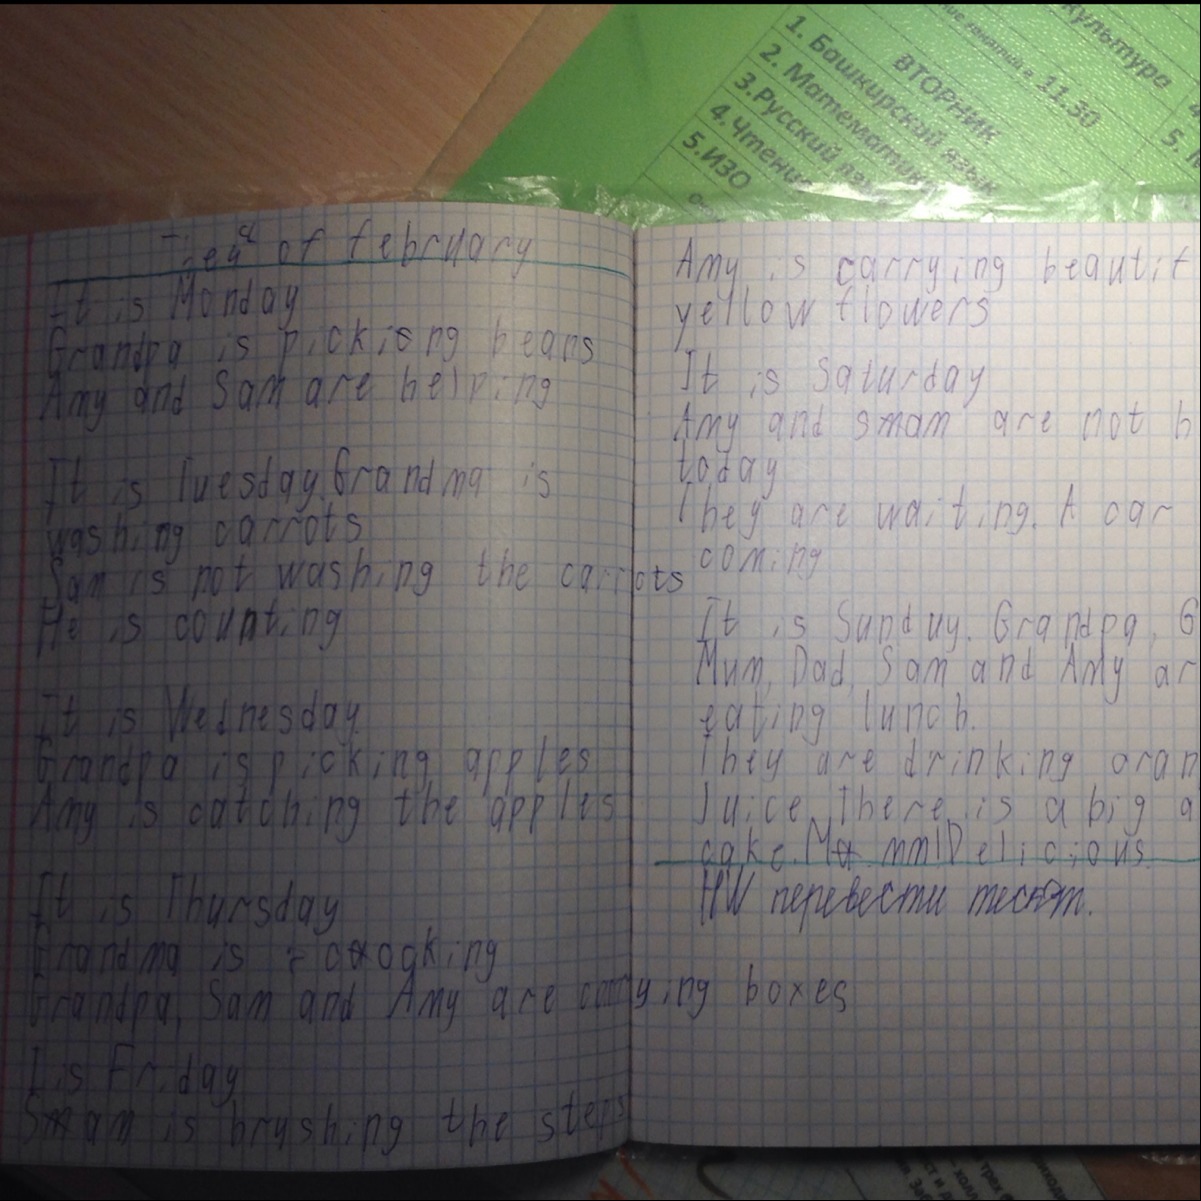 культуре
11.30
ВТОРНИК
1. Башкирский язык
2. Математика
3.Русский
4.Чтение
5.ИЗО
5.
of february
It is Monday
Grandpa is pickisng beans
Amy and Sam are helping
It is Tuesday.Grandma is
washing carrots
Sam is not washing the carrots
He is counting
It is Wednesday.
Grandpa is picking apples
Amy is catching the apples
It is Thursday
Grandma is
Grandpa, Sam and Amy are carrying boxes
I is Friday
Smam is brushing the steps
Amy is carrying beautif
yellow flowers
It is Saturday
Amy and smam are not h
today
They are waiting. A car
coming
It is Sunduy. Grandpa, G
Mum, Dad, Sam and Amy ar
eating lunch.
They are drinking oran
Juice.There is a big a
cake. mm!Delicious.
HW перевести текст.